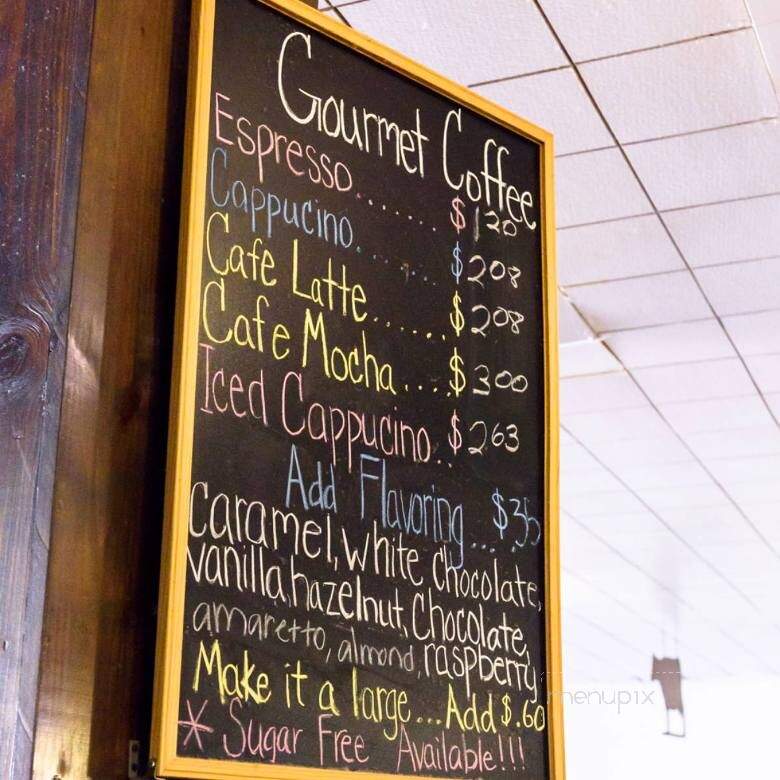 Gourmet Coffee
Espresso....... $120
Cappucino....... $208
Cafe Latte...... $208
Cafe Mocha.... $300
Iced Cappucino.. $263
Add Flavoring.... $35
caramel, white chocolate,
vanilla, hazelnut, Chocolate,
amaretto, almond, raspberry
Make it a large... Add $.60
* Sugar Free Available!!!
menupix